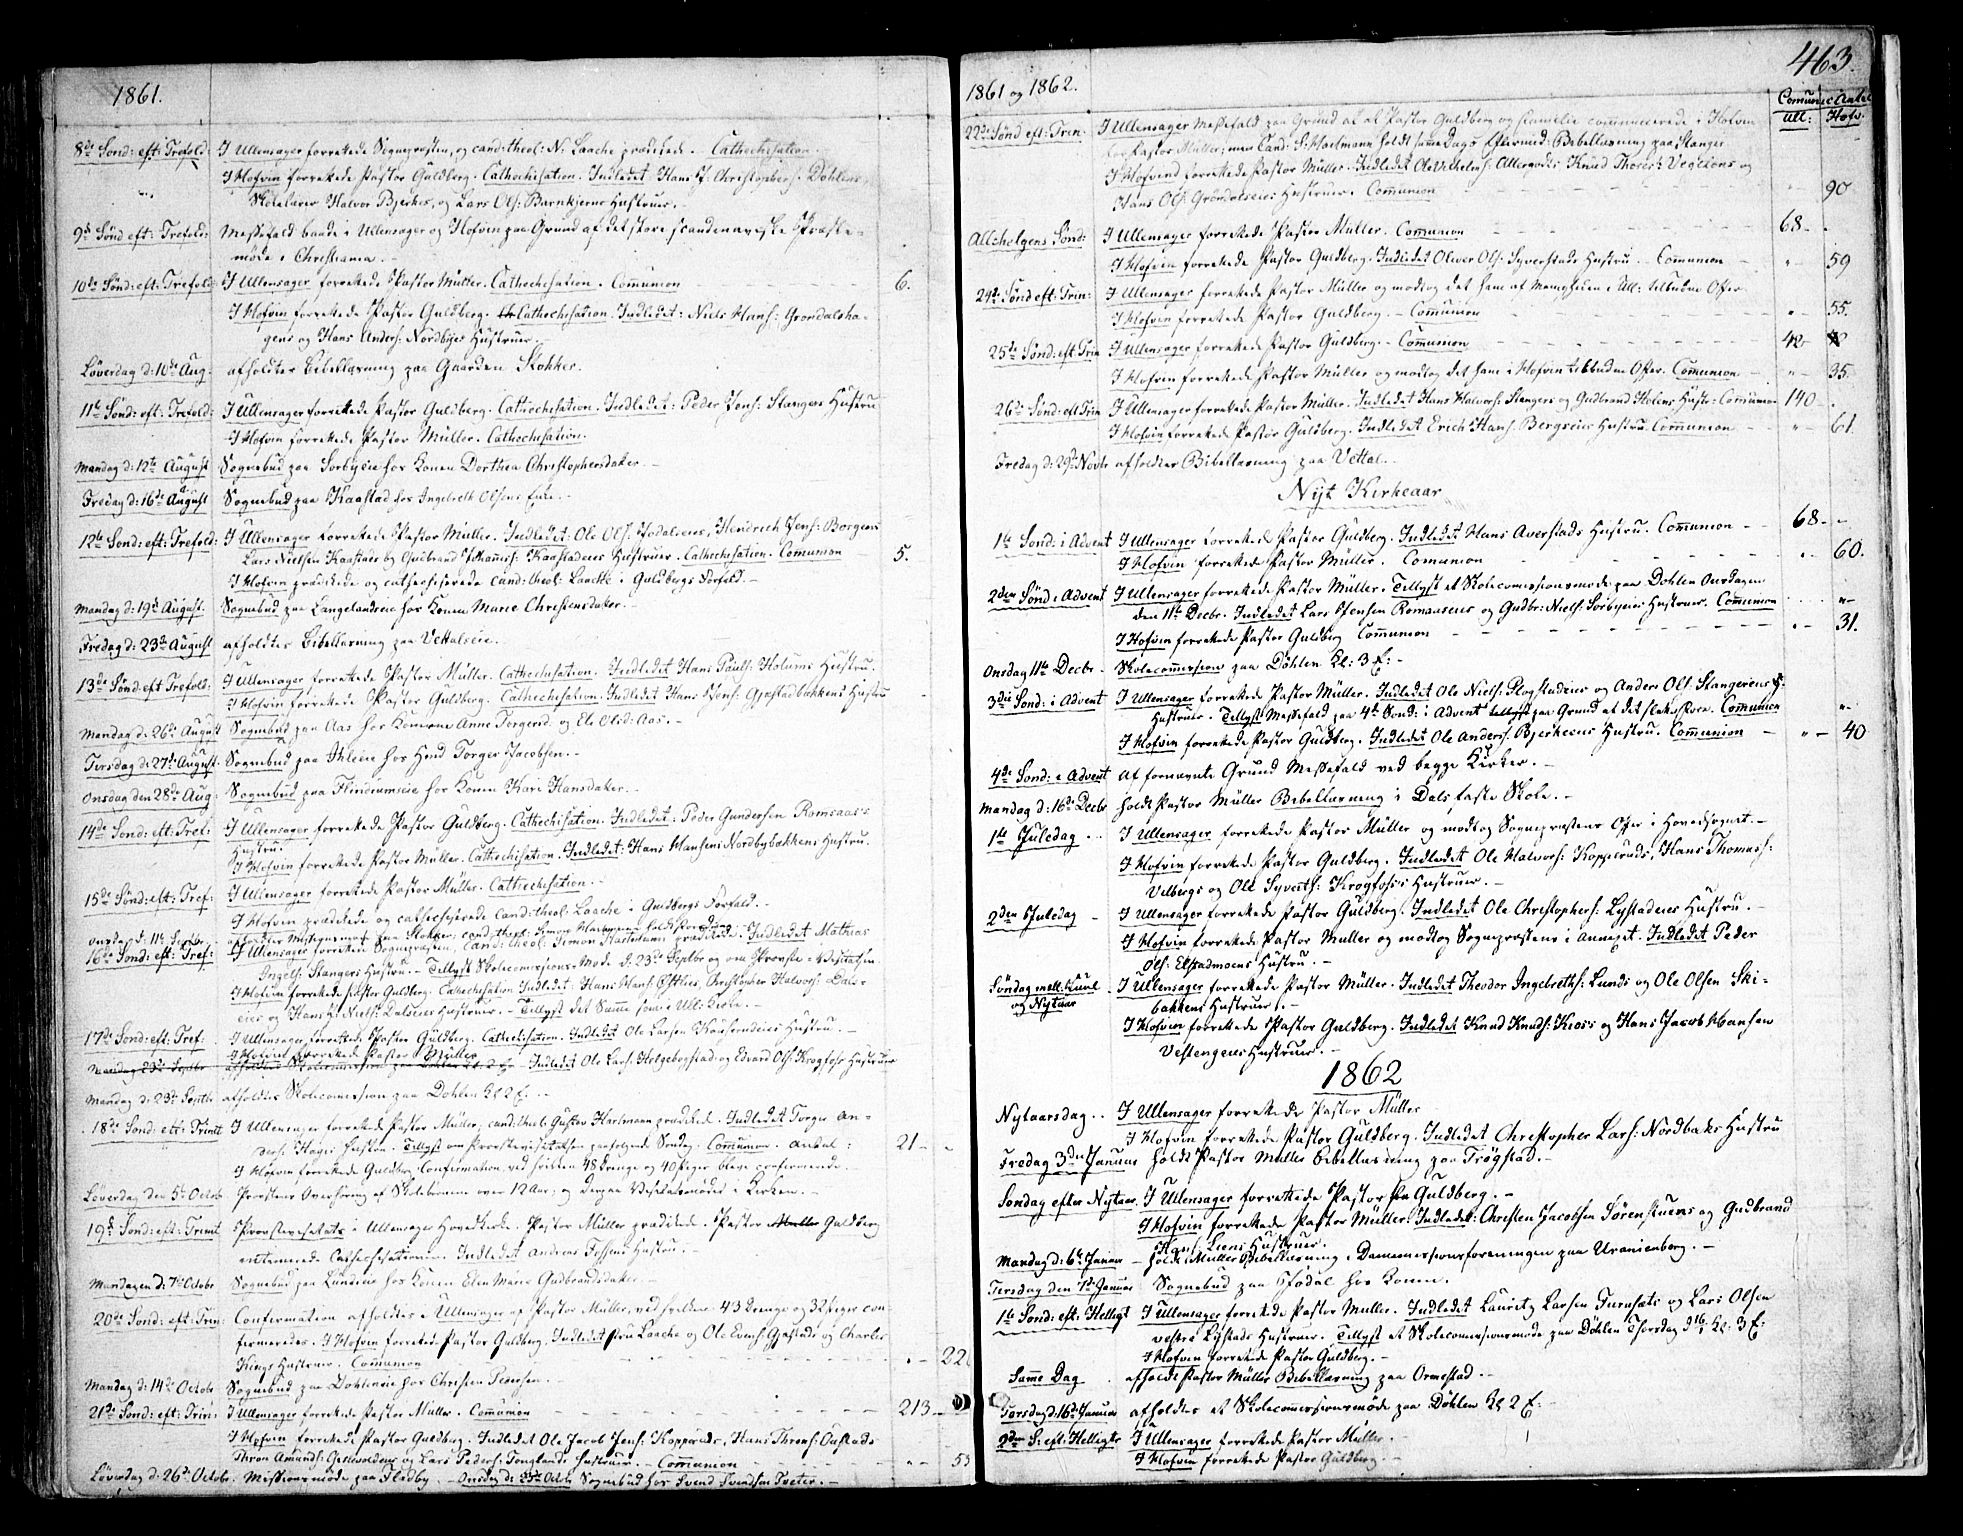 1861.
8de Sønd: eft: Trefold: I Ullensager forrettede Sognepræsten, og cand: theol: N. Laache prædikede. Cathechisation.
I Hofvin forrettede Pastor Guldberg. Cathechisation. Indledet Hans J. Christophers: Døhlens,
Skolelærer Halvor Bjerkes, og Lars Ols: Hustruer.
9de Sønd eft: Trefold: Messefald baade i Ullensager og Hofvin paa Grund af det store scandenaviske Præste-
møde i Christiania.
10de Sønd: eft: Trefold: I Ullensager forrettede Pastor Müller. Cathechisation. Communion 6.
I Hofvin forrettede Pastor Guldberg. Cathechisation. Indledet: Niels Hans: Grøndalsha-
gens og Hans Anders: Nordbyes Hustruer.
Løverdag d: 10de Aug. afholdtes Bibellæsning paa Gaarden Slokker.
11te Sønd: eft: Trefold: I Ullensager forrettede Pastor Guldberg. Cathechisation. Indledet: Peder Jens: Stangers Hustru
I Hofvin forrettede Pastor Müller. Cathechisation.
Mandag d: 12te August Sognebud paa Sørbyeie hos Konen Dorthea Christophersdater.
Fredag d: 16de August Sognebud paa Kaastad hos Ingebreth Olsens Enke.
12te Sønd: eft: Trefold: I Ullensager forrettede Pastor Müller. Indledet: Ole Ols: Jodaleies, Hendrich Jens: Borgens
Lars Nielsen Kaastads og Gudbrand Johannis: Kaastadeies Hustruer. Cathechisation. Comunion 5.
I Hofvin prædikede og cathechiserede cand: theol: Laache i Guldbergs Forfald.
Mandag d: 19de August. Sognebud paa Langelandeie hos Konen Marie Christensdater.
Fredag d: 23de August afholdtes Bibellæsning paa Vettalseie.
13de Sønd: eft Trefold: I Ullensager forrettede Pastor Müller. Cathechisation. Indledet Hans Pauls: Holums Hustru.
I Hofvin forrettede Pastor Guldberg. Cathechisation. Indledet Hans Jens: Gjestadbakkens Hustru
Mandag d: 26de August Sognebud paa Aas hos Konerne Anne Torgersd: og Eli Olsd: Aas.
Tirsdag d: 27de August. Sognebud paa Ihleeie hos Torger Jacobsen.
Onsdag den 28de Aug: Sognebud paa hos Konen Kari Hansdater.
14de Sønd: eft: Tref: I Ullensager forrettede Pastor Guldberg. Cathechisation. Indledet: Peder Gundersen Romsaas's
Hustru.
I Hofvin forrettede Pastor Müller. Cathechisation. Indledet: Hans Hansens Nordbybakkens Hustru.
15de Sønd: eft: Tref: I Ullensager forrettede Pastor Müller. Cathechisation.
I Hofvin prædikede og cathechiserede cand: theol: Laache i Guldbergs Forfald.
Onsdag d: 11te Septbr
16de Sønd: eft: Tref: I Ullensager forrettede Sognepræsten, Cand: theol: Simon Hartmann prædikede. Indledet Mathias
Ingels: Stangers Hustru. Tillyst Skolecomissions-Møde d: 23de Septbr og om Provste-Visitatsen
I Hofvin forrettede Pastor Guldberg. Cathechisation. Indledet: Hans Hans: Christopher Halvors: Dals-
eies og Hans H: Niels: Dalseies Hustruer. Tillyst det Samme som i Ull: Kirke.
17de Sønd: eft. Tref: I Ullensager forrettede Pastor Guldberg. Cathechisation. Indledet Ole Larsen Hustru.
I Hofvin forrettede Pastor Müller
Mandag 23de Septbr Indledet Ole Lars: Helgebostad og Edvard Ols: Krogfoss Hustruer
Mandag d: 23de Septbr afholdtes Skolecomission paa Døhlen Kl 2 E.
18de Sønd: eft: Trinit I Ullensager forrettede Pastor Müller; cand: theol: Gustav Hartmann prædiked. Indledet Torger An-
ders: Hages Hustru. Tillyst om Provstevisitatsen paafølgende Søndag. Communion. Antal: 21
I Hofvin forrettede Guldberg. Confirmation, ved hvilken 48 Drenge og 40 Piger bleve confirmerede.
Løverdag den 5te Octobr Provstens Overhøring af Skolebørnene over 12 Aar, og derpaa Visitatsmødet i Kirken.
19de Sønd: eft: Trinit Provstevisitats i Ullensager Hovedkirke. Pastor Müller prædikede. Pastor Müller Guldberg
Cathechisationen. Indledet Andreas Hustru.
Mandagen d: 7de Octobr Sognebud paa Lundeie hos Konen Elen Marie Gudbrandsdater.
20de Sønd: eft: Trin: Confirmation afholdtes i Ullensager af Pastor Müller, ved hvilken 43 Drenge og 32 Piger con
firmeredes. I Hofvin forrettede Pastor Guldberg. Indledet Fru Laache og Ole Evens: Gjestads og Charles
Kings Hustruer. Communion 22
Mandag d: 14de Octobr Sognebud paa Dohleneie hos Christen Pedersen.
21de Sønd: eft: Trin: I Ullensager forrettede Pastor Müller. Communion 213
I Hofvin forrettede Pastor Guldberg. Indledet Ole Jacob Jens: Kopperuds, Hans Throns: Onstads
Thron Amunds: og Lars Peders: Tonglands Hustruer. Communion 53
Løverdag d: 26de Octobr. Missionsmøde paa Fladby. Onsdag d: 23de Octbr Sognebud hos Svend Svendsen Tveter.
463.
1861 og 1862.
Comunic: Antal
Ull: Hofv:
22de Sønd eft: Tren: I Ullensager Messefald paa Grund af at Pastor Guldberg og Familie communicerede i Hofvin
for Pastor Müller; men Cand: S. Hartmann holdt samme Dags Eftermid: Bibellæsning paa Stanger
I Hofvind forrettede Pastor Müller. Indledet Ole Vilhelms: Allergods Knud Thores: Vegstens og
Hans Ols: Grøndalseies Hustruer. Communion 90
Allehelgens Sønd: I Ullensager forrettede Pastor Müller. Communion 68
I Hofvin forrettede Pastor Guldberg. Indledet Oliver Ols: Syverstads Hustru. Communion 59
24de Sønd eft: Trin: I Ullensager forrettede Pastor Müller og modtog det ham af Menigheden i Ull: tilbudne Offer
I Hofvin forrettede Pastor Guldberg. Communion 55.
25de Sønd: eft: Trin I Ullensager forrettede Pastor Guldberg. Communion 42
I Hofvin forrettede Pastor Müller og modtog det ham i Hofvin tilbudne Offer. Comunion 35
26de Sønd: eft Trin I Ullensager forrettede Pastor Müller. Indledet Hans Halvors: Stangers og Gudbrand Holens Hustr: Comunion 140
I Hofvin forrettede Pastor Guldberg. Indledet Erich Hans: Bergseies Hustru. Communion 61.
Fredag d: 29de Novbr afholdtes Bibellæsning paa Vettal.
Nyt Kirkeaar
1te Sønd: i Advent I Ullensager forrettede Pastor Guldberg. Indledet Hans Averstads Hustru. Communion 68
I Hofvin forrettede Pastor Müller. Comunion 60.
2den Sønd i Advent I Ullensager forrettede Pastor Müller. Tillyst et Skolecomissionsmøde paa Dohlen Onsdagen
den 11te Decbr. Indledet Lars Jensen Romsaseies og Gudbr: Niels: Sørbyeies Hustruer. Communion
I Hofvin forrettede Pastor Guldberg Communion 31.
Onsdag 11te Decbr Skolecommission paa Döhlen Kl: 3 E:
3die Sønd: i Advent I Ullensager forrettede Pastor Müller. Indledet Ole Niels: Plogstadeies og Anders Ols: Stangereies
Hustruer. Tillyst Messefald paa 4de Sønd: i Advent tillyst paa Grund af det slette Føre. Communion
I Hofvin forrettede Pastor Guldberg. Indledet Ole Anders: Bjerkeeies Hustru. Communion 40
4de Sønd: i Advent Af fornævnte Grund Messefald ved begge Kirker.
Mandag d: 16de Decbr holdt Pastor Müller Bibellæsning i Dals faste Skole.
1te Juledag I Ullensager forrettede Pastor Müller og modtog Sognepræstens Offer i Hovedsognet.
I Hofvin forrettede Pastor Guldberg. Indledet Ole Halvors: Kopperuds, Hans Thomas:
Velbergs og Ole Syverts: Krogfoss's Hustruer.
2den Juledag I Ullensager forrettede Pastor Guldberg. Indledet Ole Christophers: Lystadeies Hustru.
I Hofvin forrettede Pastor Müller og modtog Sognepræstens i Annexet. Indledet Peder
Ols: Elstadmoens Hustru.
Søndag mell: Juul I Ullensager forrettede Pastor Müller. Indledet Theodor Ingebreths: Lunds og Ole Olsen Ski-
og Nytaar bakkens Hustruer.
I Hofvin forrettede Pastor Guldberg. Indledet Knud Knuds: Kross og Hans Jacob Hansen
Vestengens Hustruer.
1862
Nytaarsdag I Ullensager forrettede Pastor Müller
I Hofvin forrettede Pastor Guldberg. Indledet Christopher Lars: Nordbaks Hustru
Fredag 3den Januar holdt Pastor Müller Bibellæsning paa Trøgstad.
Søndag efter Nytaar. I Ullensager forrettede Pastor Guldberg.
I Hofvin forrettede Pastor Müller. Indledet: Christen Jacobsen Sørenstuens og Gudbrand
Liens Hustruer.
Mandag d: 6te Januar holdt Müller Bibellæsning i Damemissionsforeningen paa Uranienborg.
Tirsdag den 7de Januar Sognebud paa Jodal hos Konen.
1te Sønd: eft. Helligt I Ullensager forrettede Pastor Müller. Indledet Lauritz Larsen Furusæts og Lars Olsen
vestre Lystads Hustruer. Tillyst et Skolecomissionsmøde paa Döhlen Thorsdag d 16 Kl: 3 E:
I Hofvin forrettede Pastor Guldberg.
Samme Dag afholdt Pastor Müller Bibellæsning paa Ormestad.
Torsdag d: 16de Januar afholdtes et Skolecomissionsmøde paa Döhlen Kl 2 E:
2den S: eft: Helligtr I Ullensager forrettede Pastor Müller.
I Hofvin forrettede Pastor Guldberg.